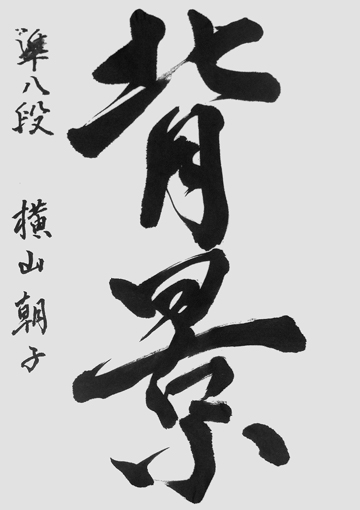 背景
準八段 横山朝子